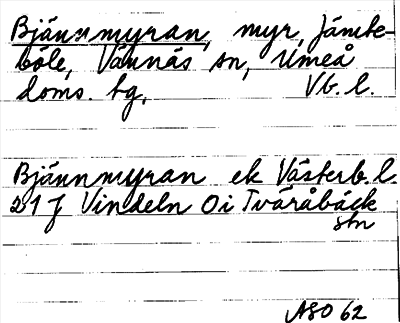 Bjännmyran, myr, Jämte-
böle, Vännäs sn, Umeå
doms. tg, Vb. l.
Bjännmyran ek Västerb. l.
21 J Vindeln 0 i Tväråbäck
stn
ASO 62